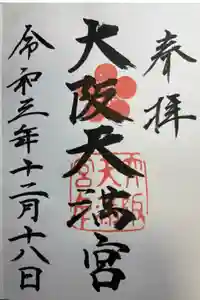 奉拝
大阪天満宮
令和三年十二月十八日